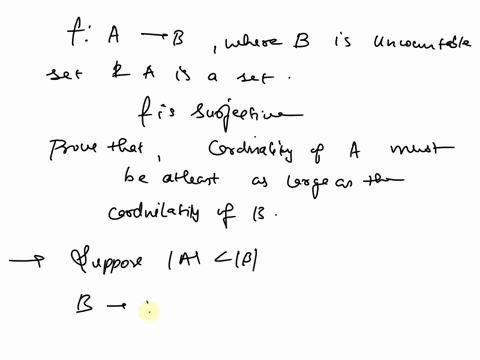 f: A → B , where B is uncountable
set & A is a set.
f is surjective
Prove that, Cardinality of A must
be atleast as large as the
cardinality of B.
→ Suppose |A| < |B|
B →